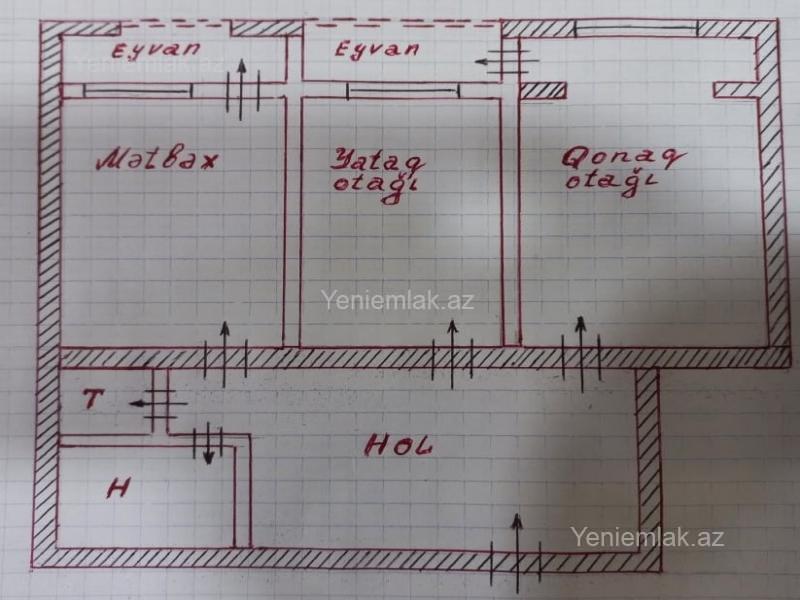 Eyvan
Eyvan
Yeniemlak.az
Mətbəx
Yataq
otağı
Qonaq
otağı
Yeniemlak.az
T
HOL
H
Yeniemlak.az